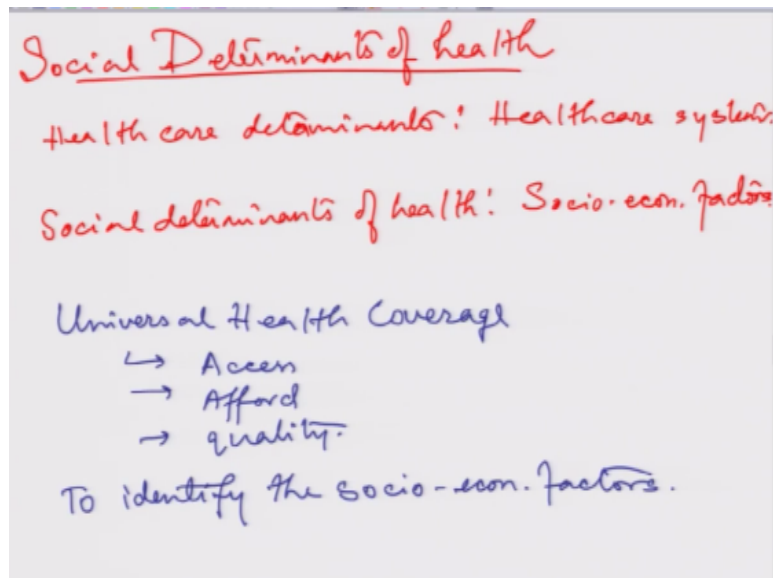 Social Determinants of health
Health care determinants: Healthcare system.
Social determinants of health: Socio-econ. factors.
Universal Health Coverage
↳ Access
→ Afford
→ quality.
To identify the socio-econ. factors.